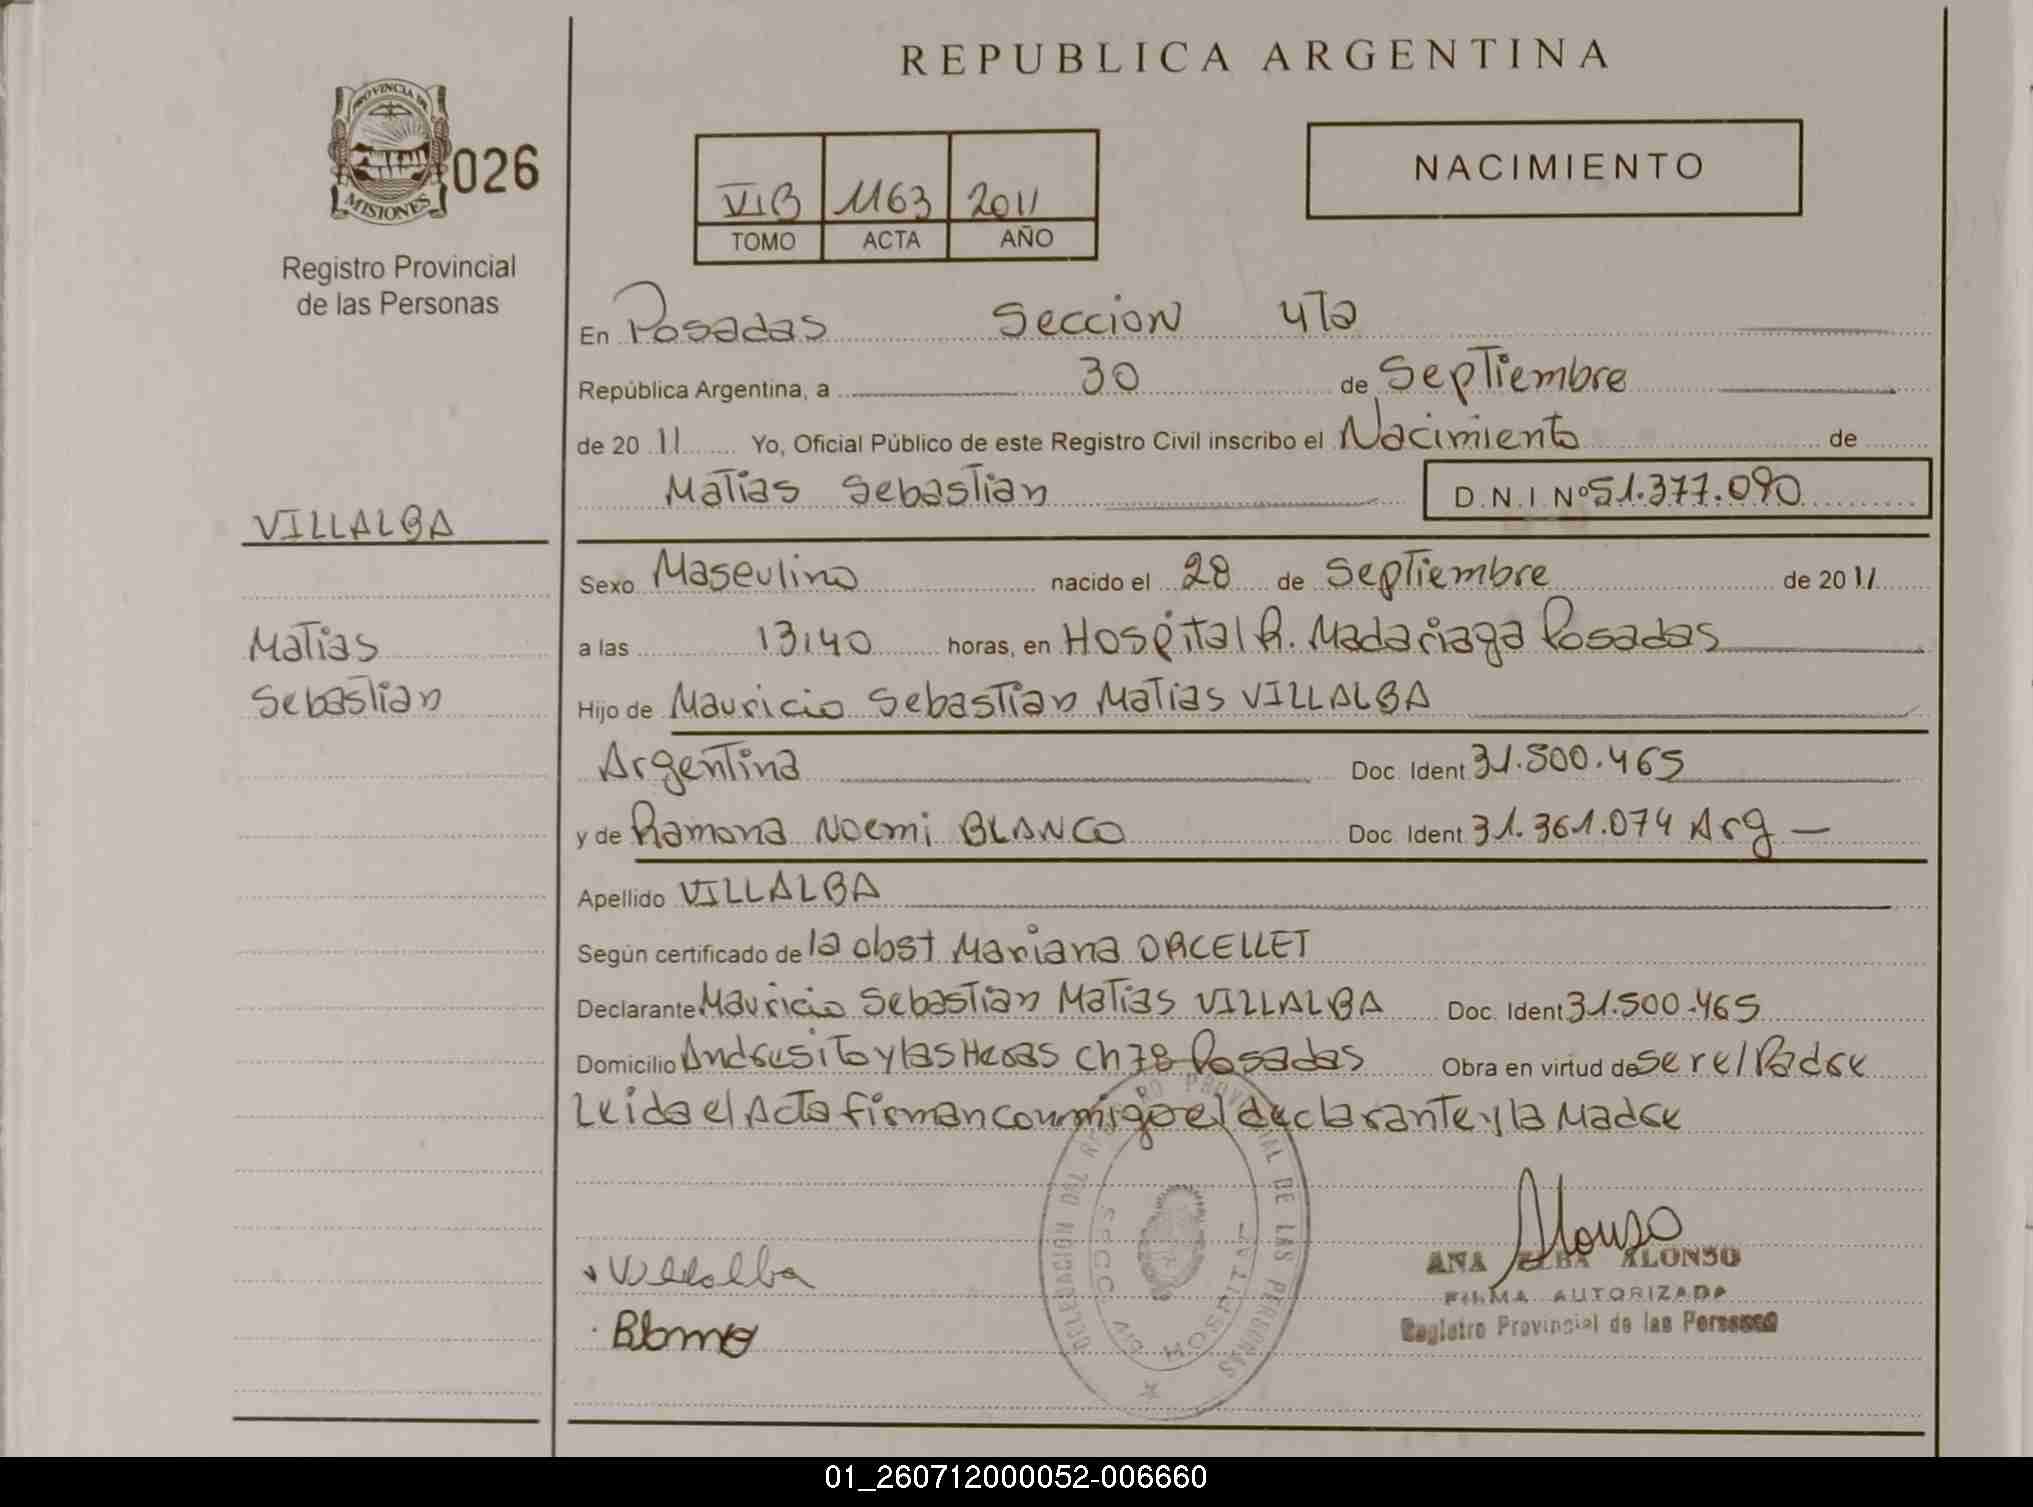 REPUBLICA ARGENTINA
PROVINCIA DE
MISIONES
026
Registro Provincial
de las Personas
VIB 1163 2011
TOMO ACTA AÑO
NACIMIENTO
En Posadas Seccion 4ta
República Argentina, a 30 de Septiembre
de 20 11 Yo, Oficial Público de este Registro Civil inscribo el Nacimiento de
Matias Sebastian D.N.I Nº 51.377.090
VILLALBA
Sexo Masculino nacido el 28 de Septiembre de 20 11
Matias
Sebastian
a las 13,40 horas, en Hospital R. Madariaga Posadas
Hijo de Mauricio Sebastian Matias VILLALBA
Argentina Doc. Ident 31.500.465
y de Ramona Noemi BLANCO Doc. Ident 31.361.074 Arg —
Apellido VILLALBA
Según certificado de la obst Mariana ORCELLET
Declarante Mauricio Sebastian Matias VILLALBA Doc. Ident 31.500.465
Domicilio Andresito y las Heras Ch 78 Posadas Obra en virtud de ser el Padre
Leida el Acta firman conmigo el declarante y la Madre
DELEGACIÓN DEL REGISTRO PROVINCIAL DE LAS PERSONAS
SECC. 4ta HOSPITAL
Villalba
Blanco
Alonso
ANA ELBA ALONSO
FIRMA AUTORIZADA
Registro Provincial de las Personas
01_260712000052-006660